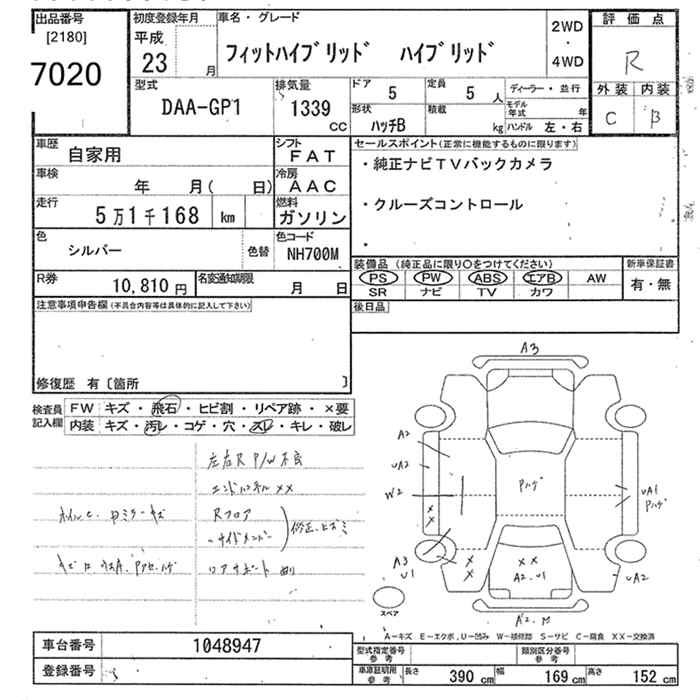 出品番号
[2180]
7020
初度登録年月
平成
23 月
車名・グレード
フィットハイブリッド ハイブリッド
2WD
・
4WD
評価点
R
外装 内装
C B
型式
DAA-GP1
排気量
1339
CC
ドア
5
定員
5 人
形状
ハッチB
積載
kg
ディーラー・並行
モデル年式 年
ハンドル 左・右
車歴
自家用
シフト
FAT
車検
年 月( 日)
冷房
AAC
走行
5万1千168 km
燃料
ガソリン
色
シルバー
色替
色コード
NH700M
R券
10,810 円
名変通知期限
月 日
セールスポイント(正常に機能するものに限ります)
・純正ナビTVバックカメラ
・クルーズコントロール
・
装備品(純正品に限り○をつけてください)
PS PW ABS エアB AW
SR ナビ TV カワ
新車保証書
有・無
後日品
注意事項申告欄(不具合内容等は具体的に記入して下さい)
修復歴 有〔箇所 〕
検査員
記入欄
FW キズ・飛石・ヒビ割・リペア跡・×要
内装 キズ・汚レ・コゲ・穴・スレ・キレ・破レ
左右R P/W不良
エンドパネル××
Rフロア
サイドメンバー
修正、ヒズミ
リアサポート
A3
A2
UA2
W2
A3
U1
Pハゲ
UA1
Pハゲ
UA2
××
A2・U1
スペア
A-キズ E-エクボ,U-凹み W-補修跡 S-サビ C-腐食 XX-交換済
車台番号
1048947
登録番号
型式指定番号
参考
類別区分番号
参考
車庫証明用
参考
長さ
390 cm
幅
169 cm
高さ
152 cm